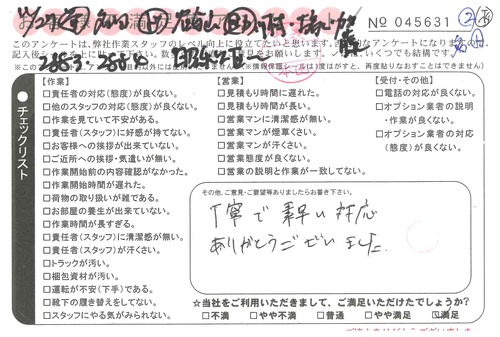 No 045631
このアンケートは、弊社作業スタッフのレベル向上に役立てたいと思います。
チェックリスト
【作業】
□責任者の対応(態度)が良くない。
□他のスタッフの対応(態度)が良くない。
□作業を見ていて不安がある。
□責任者(スタッフ)に好感が持てない。
□お客様への挨拶が出来ていない。
□ご近所への挨拶・気遣いが無い。
□作業開始前の内容確認がなかった。
□作業開始時間が遅れた。
□荷物の取り扱いが雑である。
□お部屋の養生が出来ていない。
□作業時間が長すぎる。
□責任者(スタッフ)に清潔感が無い。
□責任者(スタッフ)が汗くさい。
□トラックが汚い。
□梱包資材が汚い。
□運転が不安(下手)である。
□靴下の履き替えをしてない。
□スタッフにやる気がみられない。
【営業】
□見積もり時間に遅れた。
□見積もり時間が長い。
□営業マンに清潔感が無い。
□営業マンが煙草くさい。
□営業マンが汗くさい。
□営業態度が良くない。
□営業の説明と作業が一致してない。
【受付・その他】
□電話の対応が良くない。
□オプション業者の説明
・作業が良くない。
□オプション業者の対応
(態度)が良くない。
その他、ご意見・ご要望等ありましたらお書き下さい。
丁寧で素早い対応
ありがとうございました
☆当社をご利用いただきまして、ご満足いただけたでしょうか?
□不満 □やや不満 □普通 □やや満足 □満足